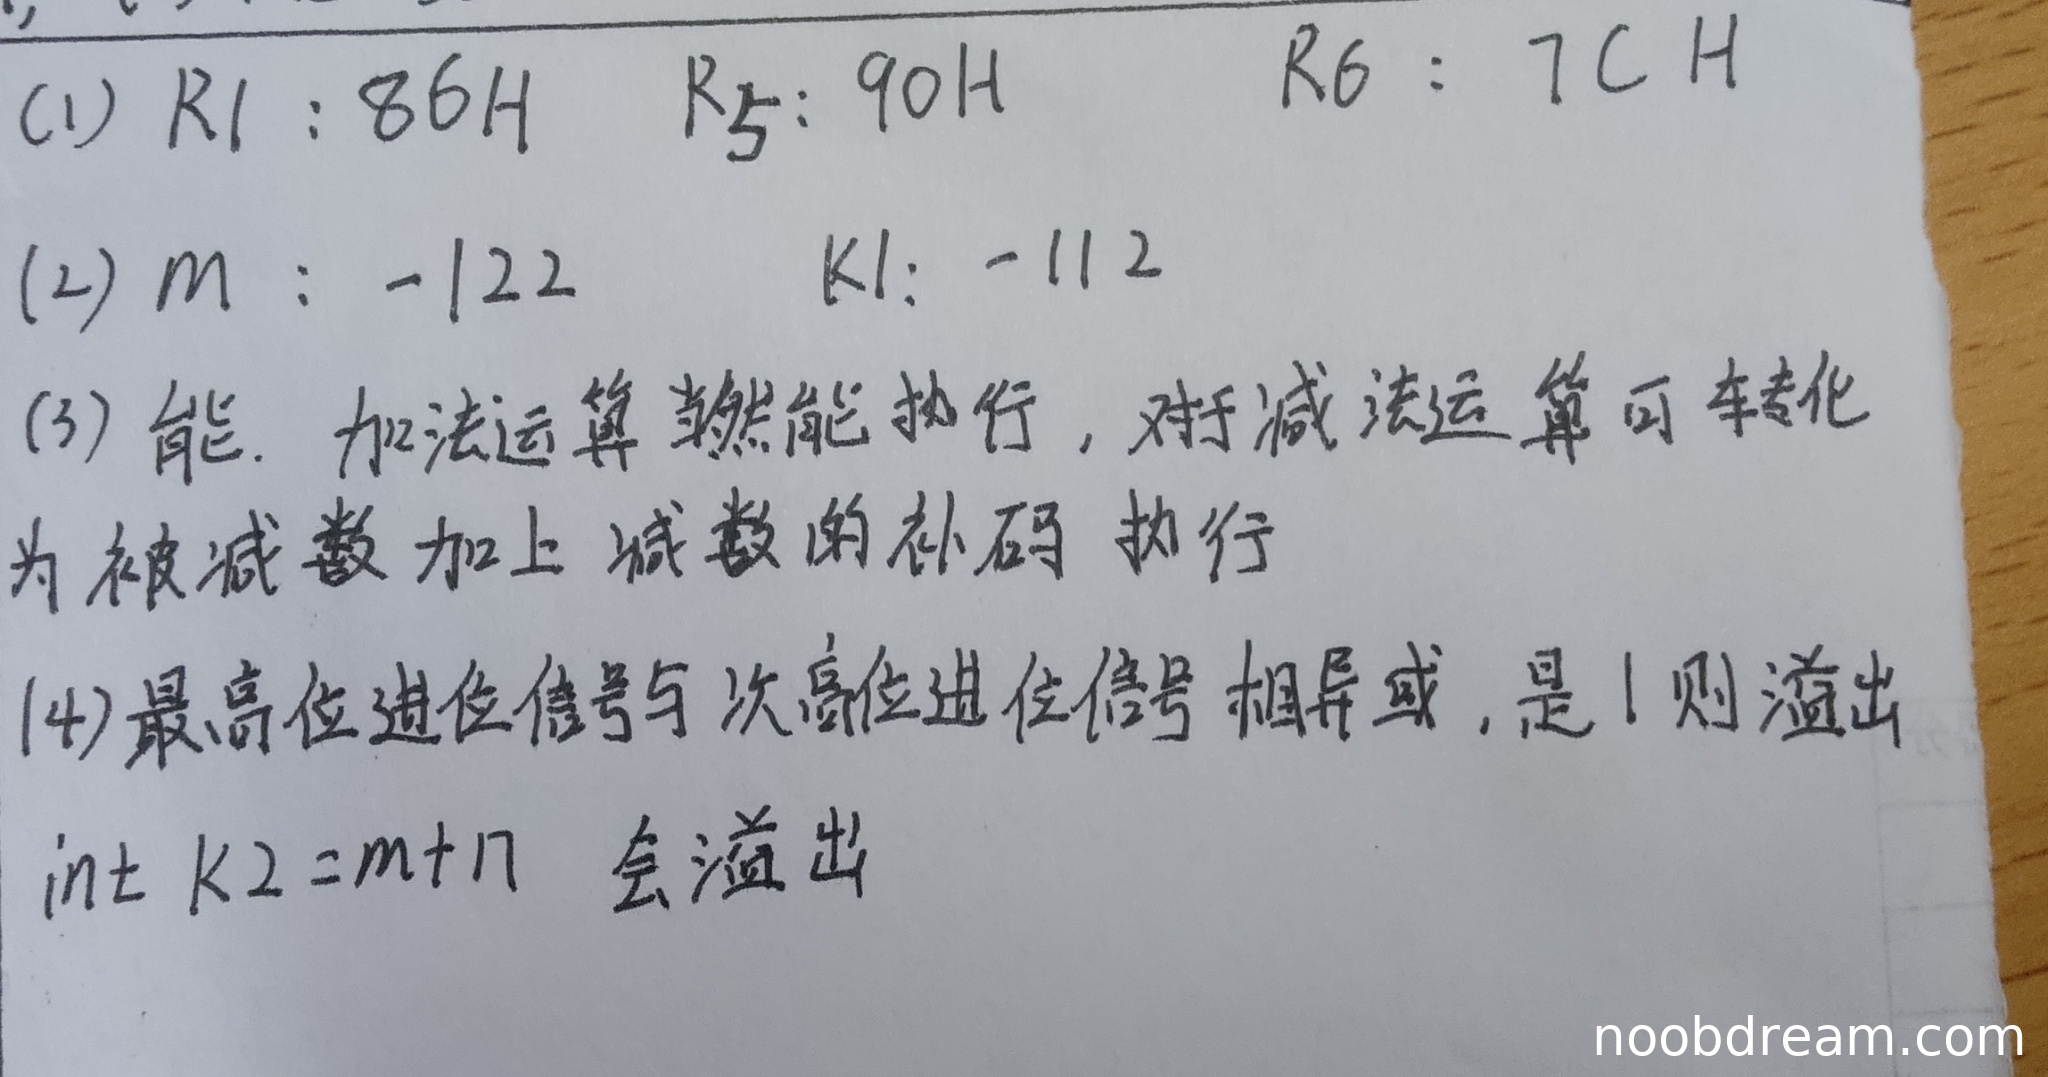 (1) R1 : 86H R5: 90H R6 : 7CH
(2) m : -122 K1: -112
(3) 能. 加法运算当然能执行, 对于减法运算可转化
为被减数加上减数的补码执行
(4) 最高位进位信号与次高位进位信号相异或, 是1则溢出
int K2=m+n 会溢出
noobdream.com